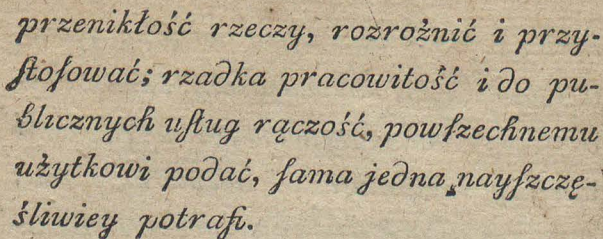 przenikłość rzeczy, rozrożnić i przy-
ſtoſować; rzadka pracowitość i do pu-
blicznych uſług rączość, powſzechnemu
użytkowi podać, ſama jedna nayſzczę-
śliwiey potrafi.